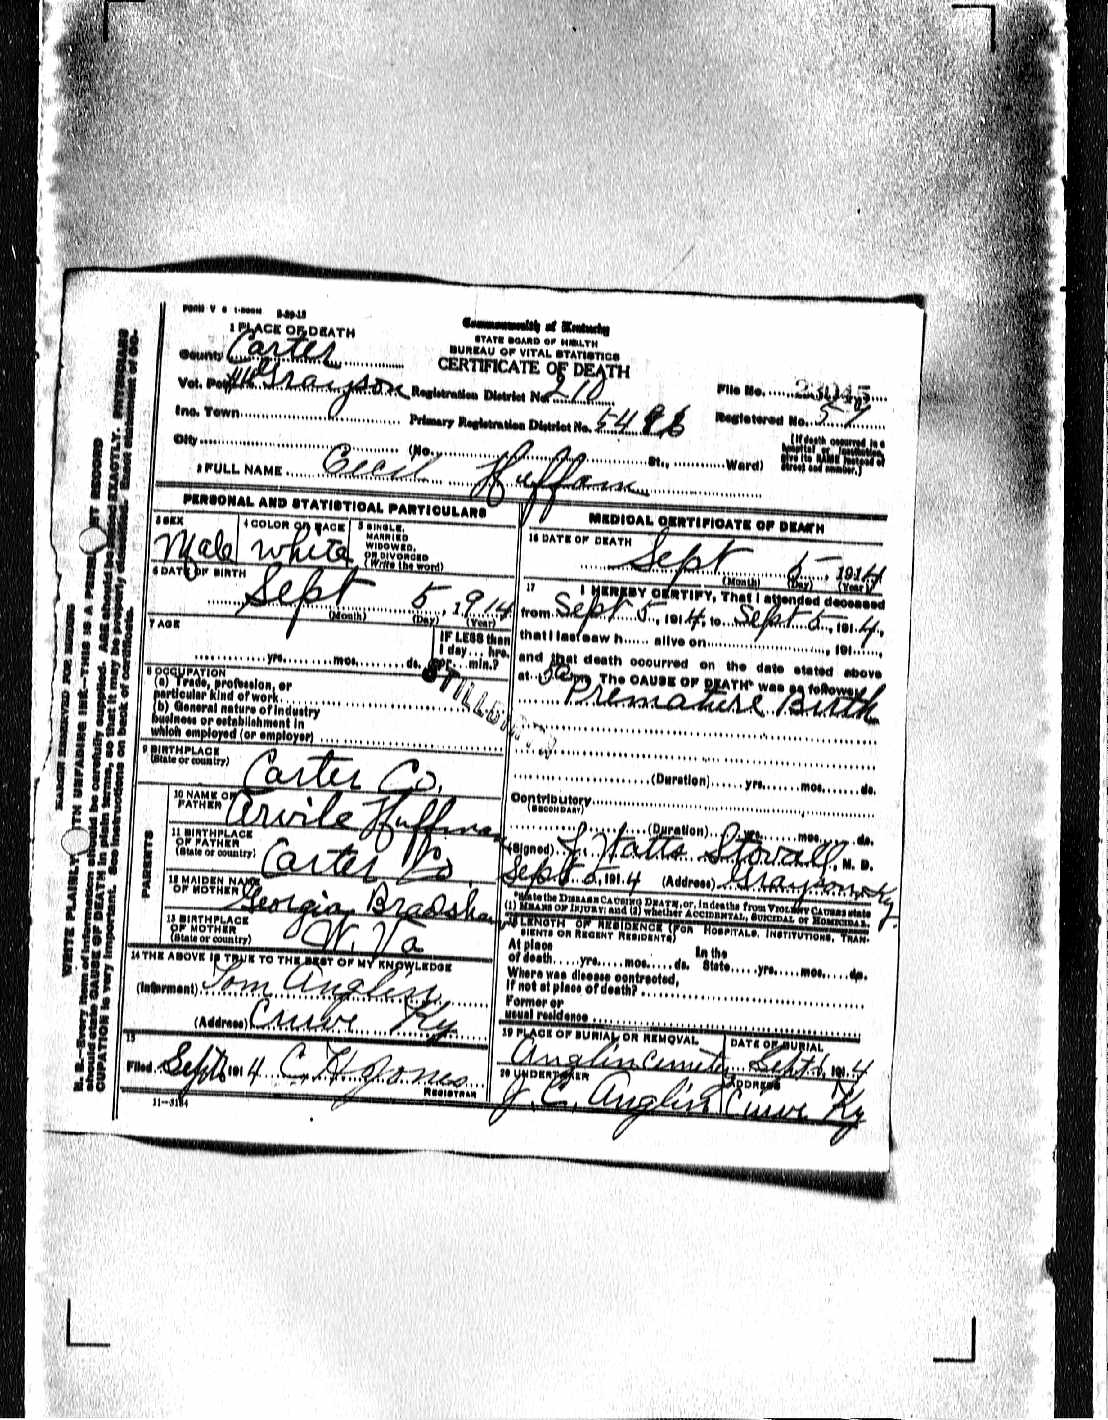 FORM V S 1-500M 8-29-13
1 PLACE OF DEATH
Commonwealth of Kentucky
STATE BOARD OF HEALTH
BUREAU OF VITAL STATISTICS
CERTIFICATE OF DEATH
County Carter
Vot. Pct. Grayson Registration District No. 210
File No. 23045
Inc. Town Primary Registration District No. 5496
Registered No. 57
City (No. St., Ward)
[If death occurred in a hospital or institution, give its NAME instead of street and number.]
2 FULL NAME Cecil Huffam
PERSONAL AND STATISTICAL PARTICULARS
3 SEX
Male
4 COLOR OR RACE
White
5 SINGLE, MARRIED WIDOWED, OR DIVORCED (Write the word)
6 DATE OF BIRTH
Sept 5, 1914
(Month) (Day) (Year)
7 AGE
yrs. mos. ds.
IF LESS than 1 day... hrs. or... min.?
STILLBORN
8 OCCUPATION
(a) Trade, profession, or
particular kind of work
(b) General nature of industry
business or establishment in
which employed (or employer)
9 BIRTHPLACE
(State or country)
Carter Co.
PARENTS
10 NAME OF FATHER
Arvile Huffman
11 BIRTHPLACE OF FATHER
(State or country)
Carter Co.
12 MAIDEN NAME OF MOTHER
Georgia Bradshaw
13 BIRTHPLACE OF MOTHER
(State or country)
W. Va
14 THE ABOVE IS TRUE TO THE BEST OF MY KNOWLEDGE
(Informant) Tom Anglin
(Address) Ky
15
Filed Sept 6 1914 C H Jones
REGISTRAR
11-3184
MEDICAL CERTIFICATE OF DEATH
16 DATE OF DEATH
Sept 5, 1914
(Month) (Day) (Year)
17 I HEREBY CERTIFY, That I attended deceased
from Sept 5, 1914, to Sept 5, 1914,
that I last saw h alive on , 191 ,
and that death occurred on the date stated above
at 5 am The CAUSE OF DEATH* was as follows:
Premature Birth
(Duration) yrs. mos. ds.
Contributory
(SECONDARY)
(Duration) yrs. mos. ds.
(Signed) J. Watts Stovall, M. D.
Sept 5, 1914 (Address) Grayson Ky.
*State the DISEASE CAUSING DEATH, or, in deaths from VIOLENT CAUSES state
(1) MEANS OF INJURY; and (2) whether ACCIDENTAL, SUICIDAL or HOMICIDAL.
18 LENGTH OF RESIDENCE (FOR HOSPITALS, INSTITUTIONS, TRAN-
SIENTS OR RECENT RESIDENTS)
At place of death yrs. mos. ds. In the State yrs. mos. ds.
Where was disease contracted,
If not at place of death?
Former or
usual residence
19 PLACE OF BURIAL OR REMOVAL
Anglin Cemetery
DATE OF BURIAL
Sept 6, 1914
20 UNDERTAKER
J. C. Anglin
ADDRESS
Ky
MARGIN RESERVED FOR BINDING
WRITE PLAINLY, WITH UNFADING INK—THIS IS A PERMANENT RECORD
N. B.—Every item of information should be carefully supplied. AGE should be stated EXACTLY. PHYSICIANS
should state CAUSE OF DEATH in plain terms, so that it may be properly classified. Exact statement of OC-
CUPATION is very important. See instructions on back of certificate.